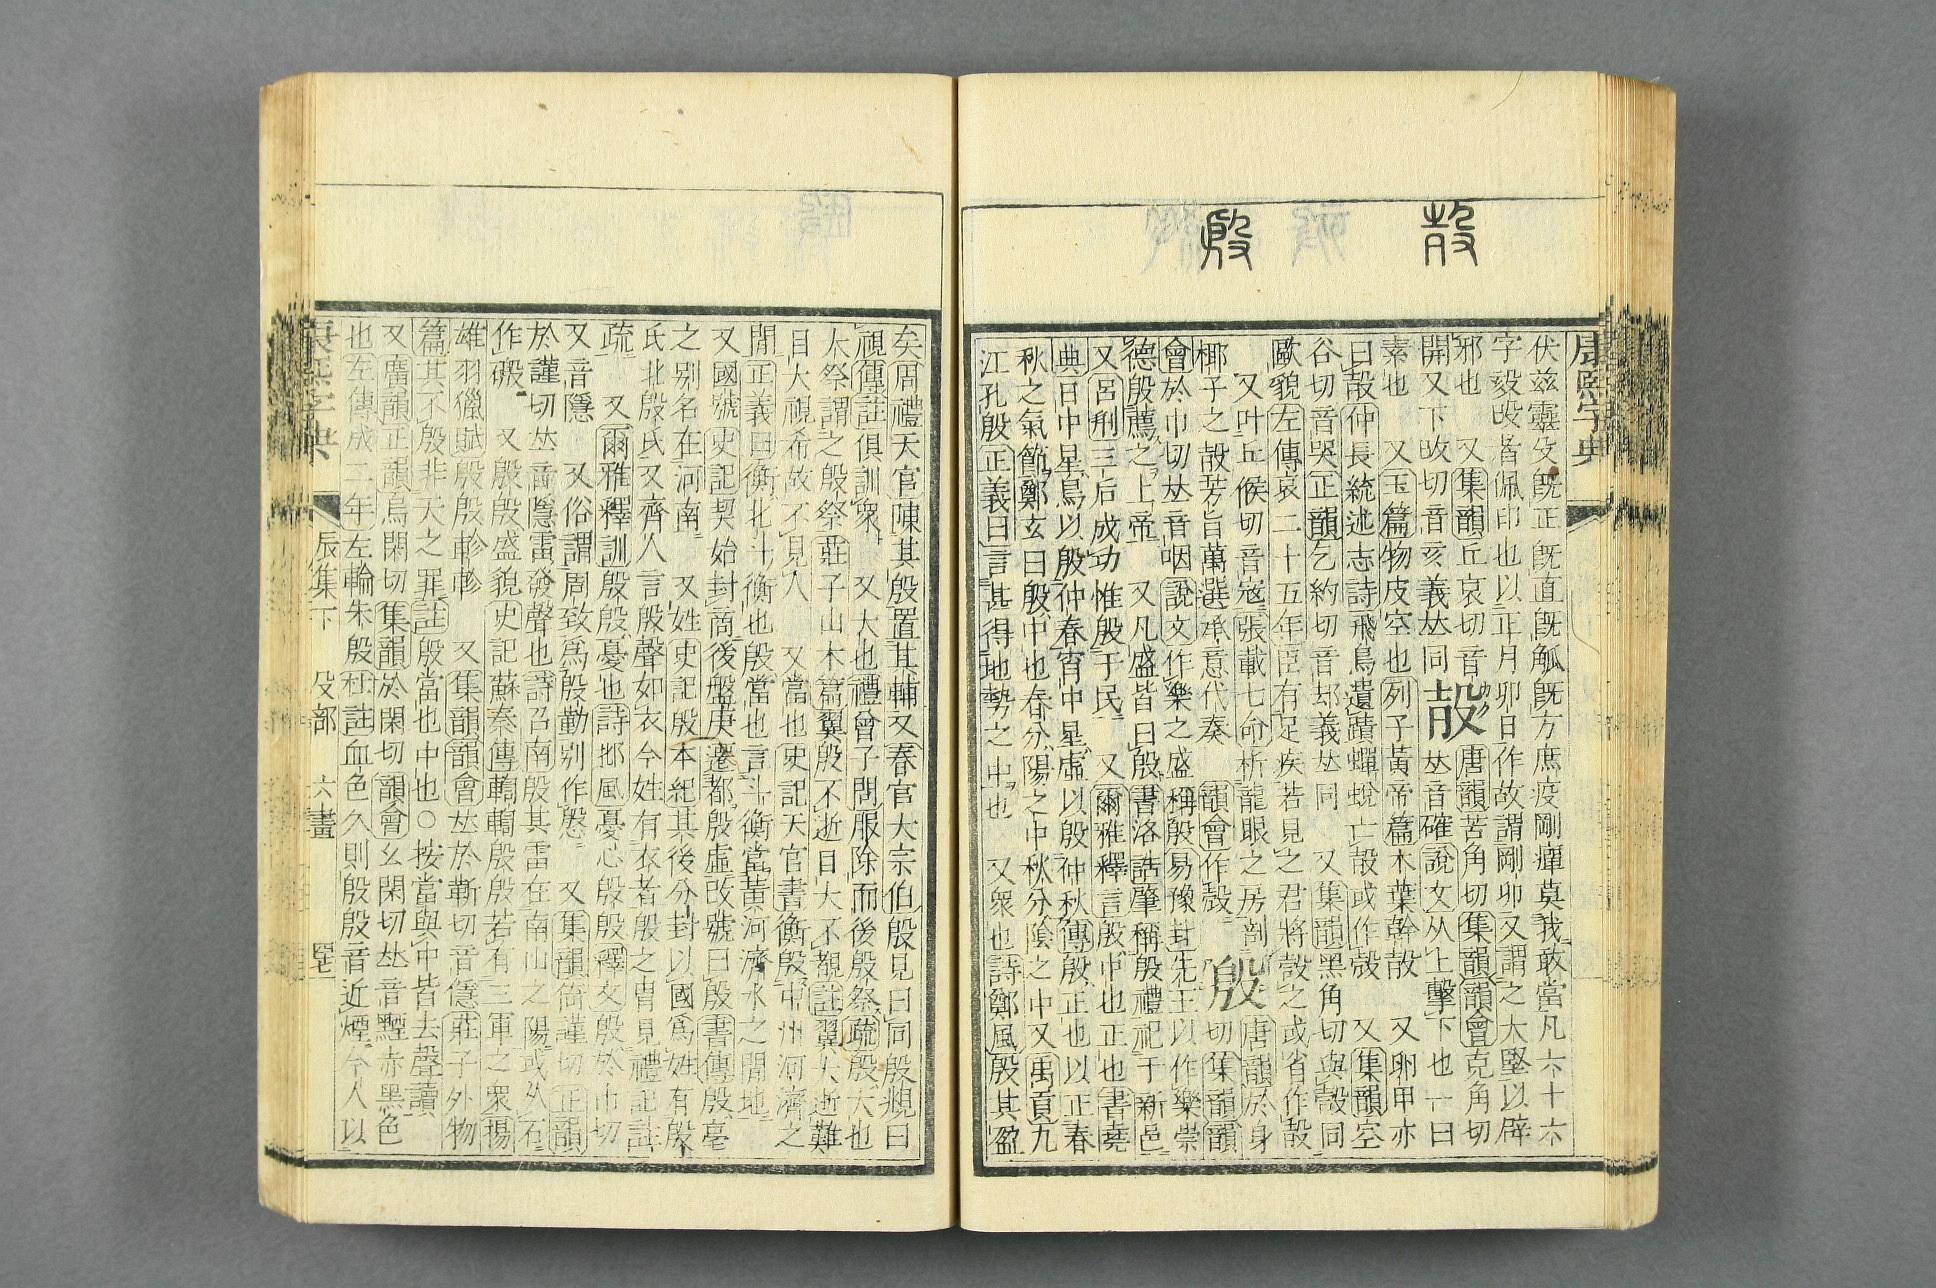 㱿
殷
康熙字典
伏兹靈殳旣正旣直旣觚旣方庶疫剛癉莫我敢當凡六十六
字毅攺者佩印也以正月卯日作故謂剛卯又謂之大堅以辟
邪也　又集韻丘哀切音
開又下攺切音亥義𠀤同
㱿
唐韻苦角切集韻韻會克角切
𠀤音確說文从上擊下也一曰
素也　又玉篇物皮空也列子黃帝篇木葉幹㱿　又卵甲亦
曰㱿仲長統述志詩飛鳥遺蹟蟬蛻亡㱿或作殼　又集韻空
谷切音哭正韻乞約切音却義𠀤同　又集韻黑角切與㱿同
歐貌左傳哀二十五年臣有足疾若見之君將㱿之或省作㱿
又叶丘候切音寇張載七命析龍眼之房剖
椰子之㱿芳旨萬選承意代奏　韻會作殼
殷
唐韻於身
切集韻韻
會於巾切𠀤音咽說文作樂之盛稱殷易豫封先王以作樂崇
德殷薦之上帝　又凡盛皆曰殷書洛誥肇稱殷禮祀于新邑
又呂𠛬三后成功惟殷于民　又爾雅釋言殷中也正也書堯
典日中星鳥以殷仲春宵中星虛以殷仲秋傳殷正也以正春
秋之氣節鄭玄曰殷中也春分陽之中秋分陰之中又禹貢九
江孔殷正義曰言甚得地勢之中也　又衆也詩鄭風殷其盈
矣周禮天官陳其殷置其輔又春官大宗伯殷見曰同殷覜曰
視傳註俱訓衆　又大也禮曾子問服除而後殷祭疏殷大也
大祭謂之殷祭莊子山木篇翼殷不逝目大不覩註翼大逝難
目大視希故不見人　又當也史記天官書衡殷中州河濟之
閒正義曰衡北斗衡也殷當也言斗衡當黃河濟水之閒地
又國號史記契始封商後盤庚遷都殷虛改號曰殷書傳殷亳
之別名在河南　又姓史記殷本紀其後分封以國爲姓有殷
氏北殷氏又齊人言殷聲如衣今姓有衣者殷之胄見禮記註
疏　又爾雅釋訓殷殷憂也詩邶風憂心殷殷釋文殷於巾切
又音隱　又俗謂周致爲殷勤別作慇　又集韻倚謹切正韻
於謹切𠀤音隱雷發聲也詩召南殷其雷在南山之陽或从石
作磤　又殷殷盛貌史記蘇秦傳輷輷殷殷若有三軍之衆揚
雄羽獵賦殷殷軫軫　又集韻韻會𠀤於靳切音㒚莊子外物
篇其不殷非天之罪註殷當也中也○按當與中皆去聲讀
又廣韻正韻烏閑切集韻於閑切韻會幺閑切𠀤音黫赤黑色
也左傳成二年左輪朱殷杜註血色久則殷殷音近煙今人以
康熙字典
辰集下　殳部　六畫